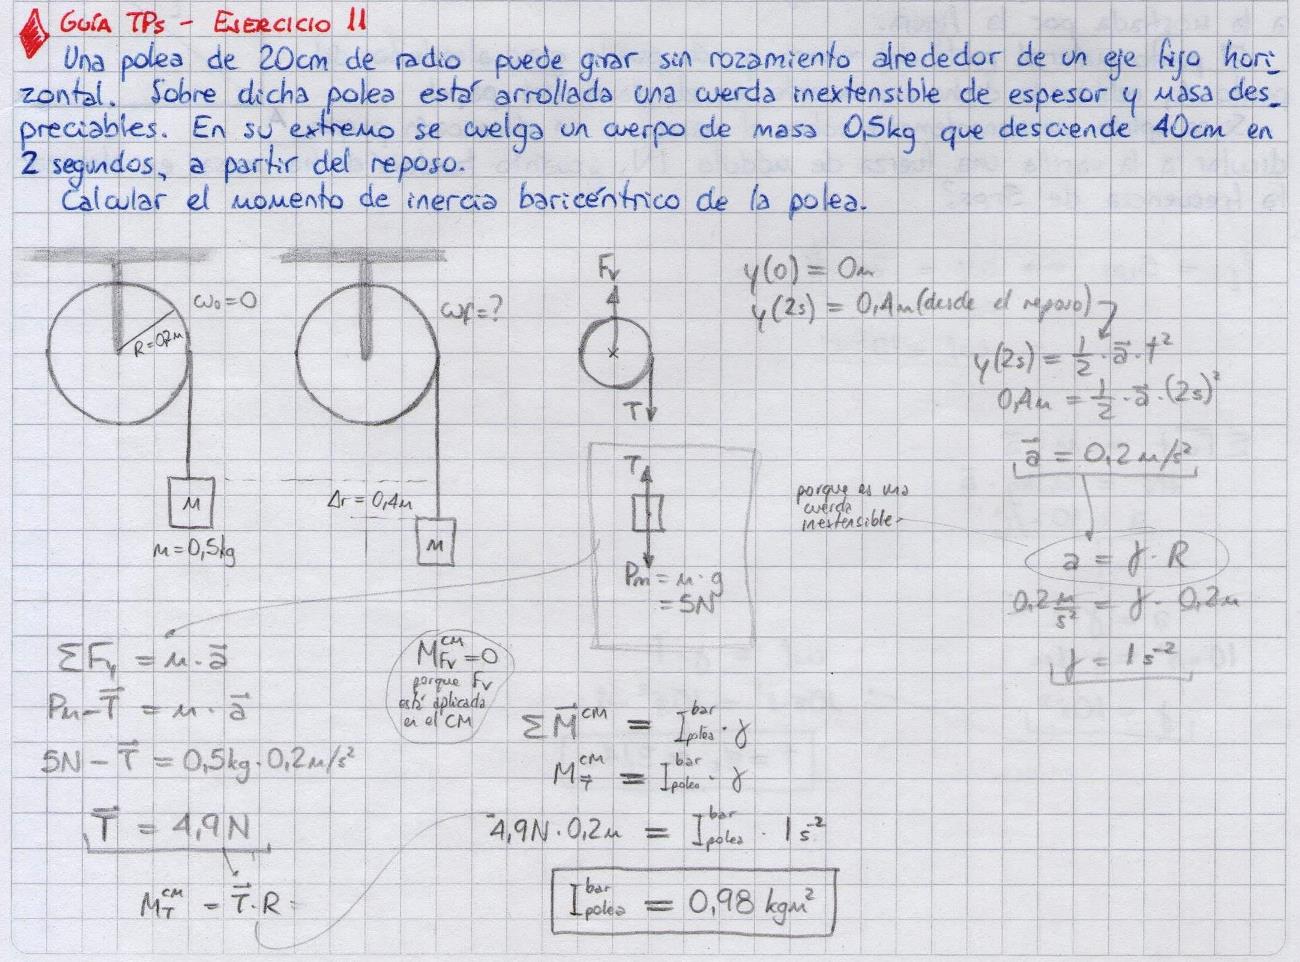 GUÍA TPs - EJERCICIO 11
Una polea de 20cm de radio puede girar sin rozamiento alrededor de un eje fijo hori-
zontal. Sobre dicha polea está arrollada una cuerda inextensible de espesor y masa des-
preciables. En su extremo se cuelga un cuerpo de masa 0,5kg que desciende 40cm en
2 segundos, a partir del reposo.
Calcular el momento de inercia baricéntrico de la polea.
ω₀=0
R=0,2m
M
m=0,5kg
ωf=?
Δr=0,4m
M
Fv
T
T
Pm = m·g
= 5N
y(0) = 0m
y(2s) = 0,4m (desde el reposo)
y(2s) = 1/2 · a⃗ · t²
0,4m = 1/2 · a⃗ · (2s)²
a⃗ = 0,2 m/s²
porque es una
cuerda
inextensible
a = γ · R
0,2 m/s² = γ · 0,2m
γ = 1 s⁻²
ΣFy = m·a⃗
Pm - T⃗ = m·a⃗
5N - T⃗ = 0,5kg·0,2m/s²
T⃗ = 4,9N
M_T^CM = T⃗·R
M_Fv^CM = 0
porque Fv
está aplicada
en el CM
ΣM⃗^CM = I_polea^bar · γ
M_T⃗^CM = I_polea^bar · γ
4,9N·0,2m = I_polea^bar · 1 s⁻²
I_polea^bar = 0,98 kgm²